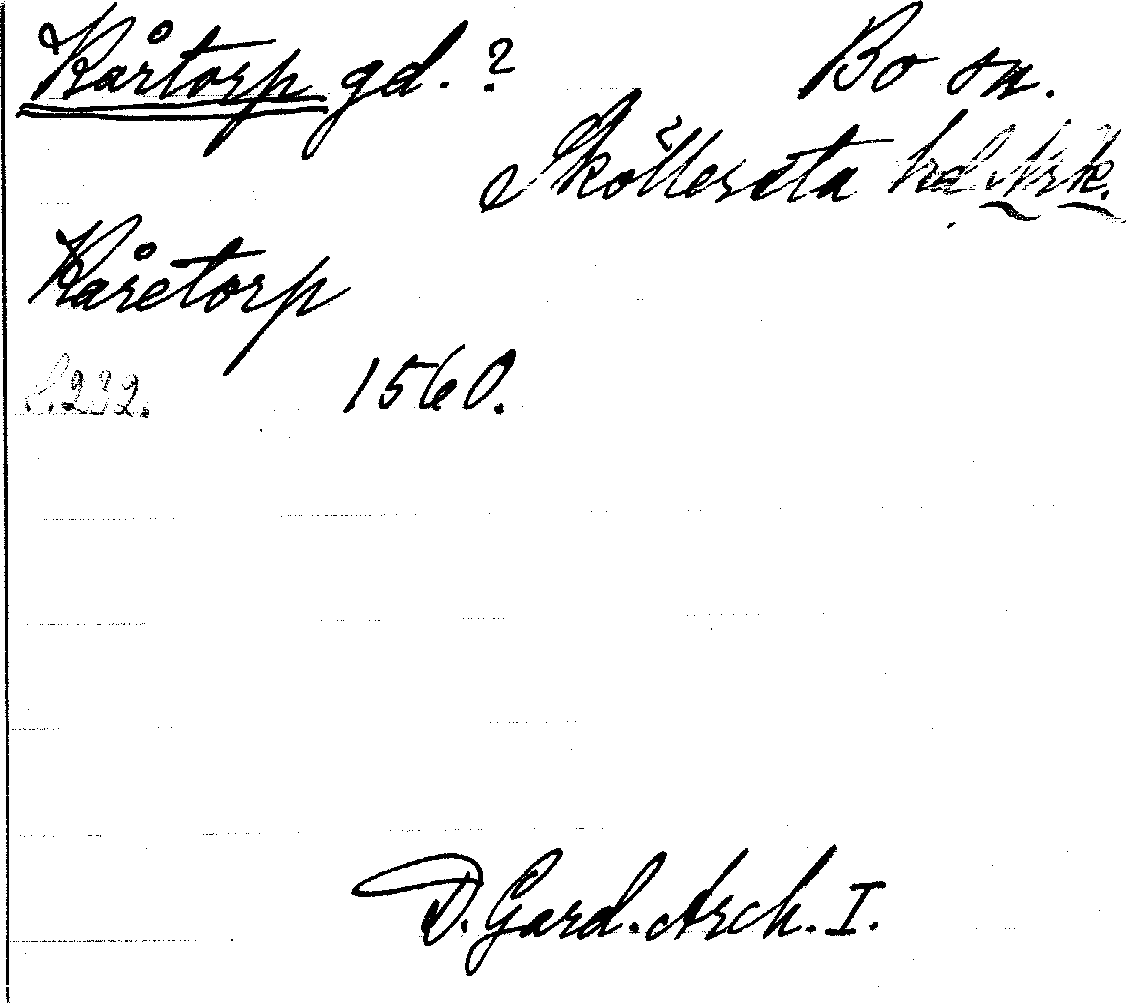 Kårtorp gd. ? Bo sn.
Sköllersta hd Nrk.
Kåretorp
S. 232. 1560.
D. Gard. Arch. I.